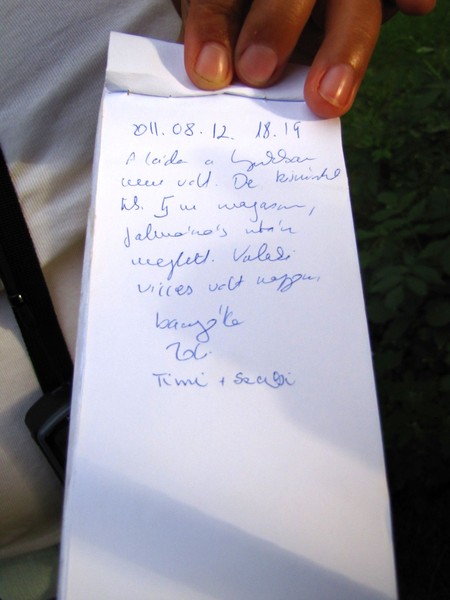 2011.08.12. 18.19
A láda a lyukban
nem volt. De
5 m magasan,
falmászás után
meglett. Valaki
vicces volt nagyon
Timi + Szabi